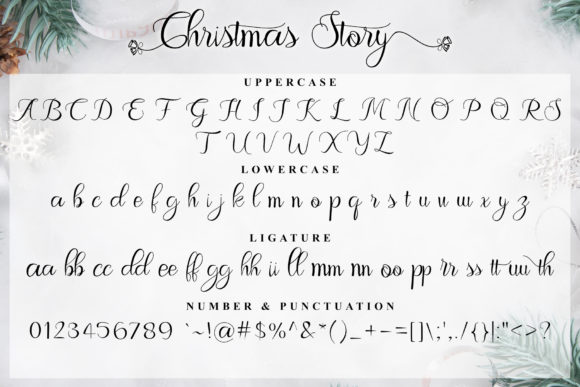 Christmas Story
UPPERCASE
A B C D E F G H I J K L M N O P Q R S
T U V W X Y Z
LOWERCASE
a b c d e f g h i j k l m n o p q r s t u u w x y z
LIGATURE
aa bb cc dd ee ff gg hh ii ll mm nn oo pp rr ss tt uu th
NUMBER & PUNCTUATION
0123456789 `~!@#$%^&*()_+-=[]\;',./{}|:"<>?